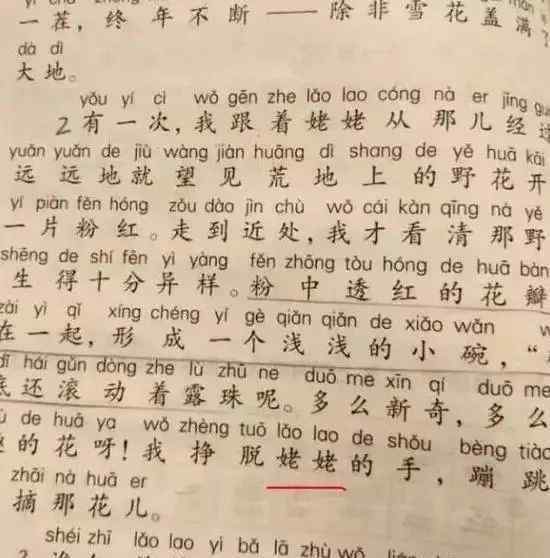 一茬，终年不断——除非雪花盖满
dà dì
大地。
yǒu yí cì wǒ gēn zhe lǎo lao cóng nà er jīng
2有一次，我跟着姥姥从那儿经过
yuǎn yuǎn de jiù wàng jiàn huāng dì shang de yě huā kāi
远远地就望见荒地上的野花开
yí piàn fěn hóng zǒu dào jìn chù wǒ cái kàn qīng nà yě
一片粉红。走到近处，我才看清那野
shēng de shí fēn yì yàng fěn zhōng tòu hóng de huā bàn
生得十分异样。粉中透红的花瓣
zài yì qǐ xíng chéng yí gè qiǎn qiǎn de xiǎo wǎn
在一起，形成一个浅浅的小碗，“
hái gǔn dòng zhe lù zhū ne duō me xīn qí duō me
底还滚动着露珠呢。多么新奇，多么
de huā ya wǒ zhèng tuō lǎo lao de shǒu bèng tiào
的花呀！我挣脱姥姥的手，蹦跳
zhāi nà huā er
摘那花儿。
shéi zhī lǎo lao yì bǎ lā zhù wǒ